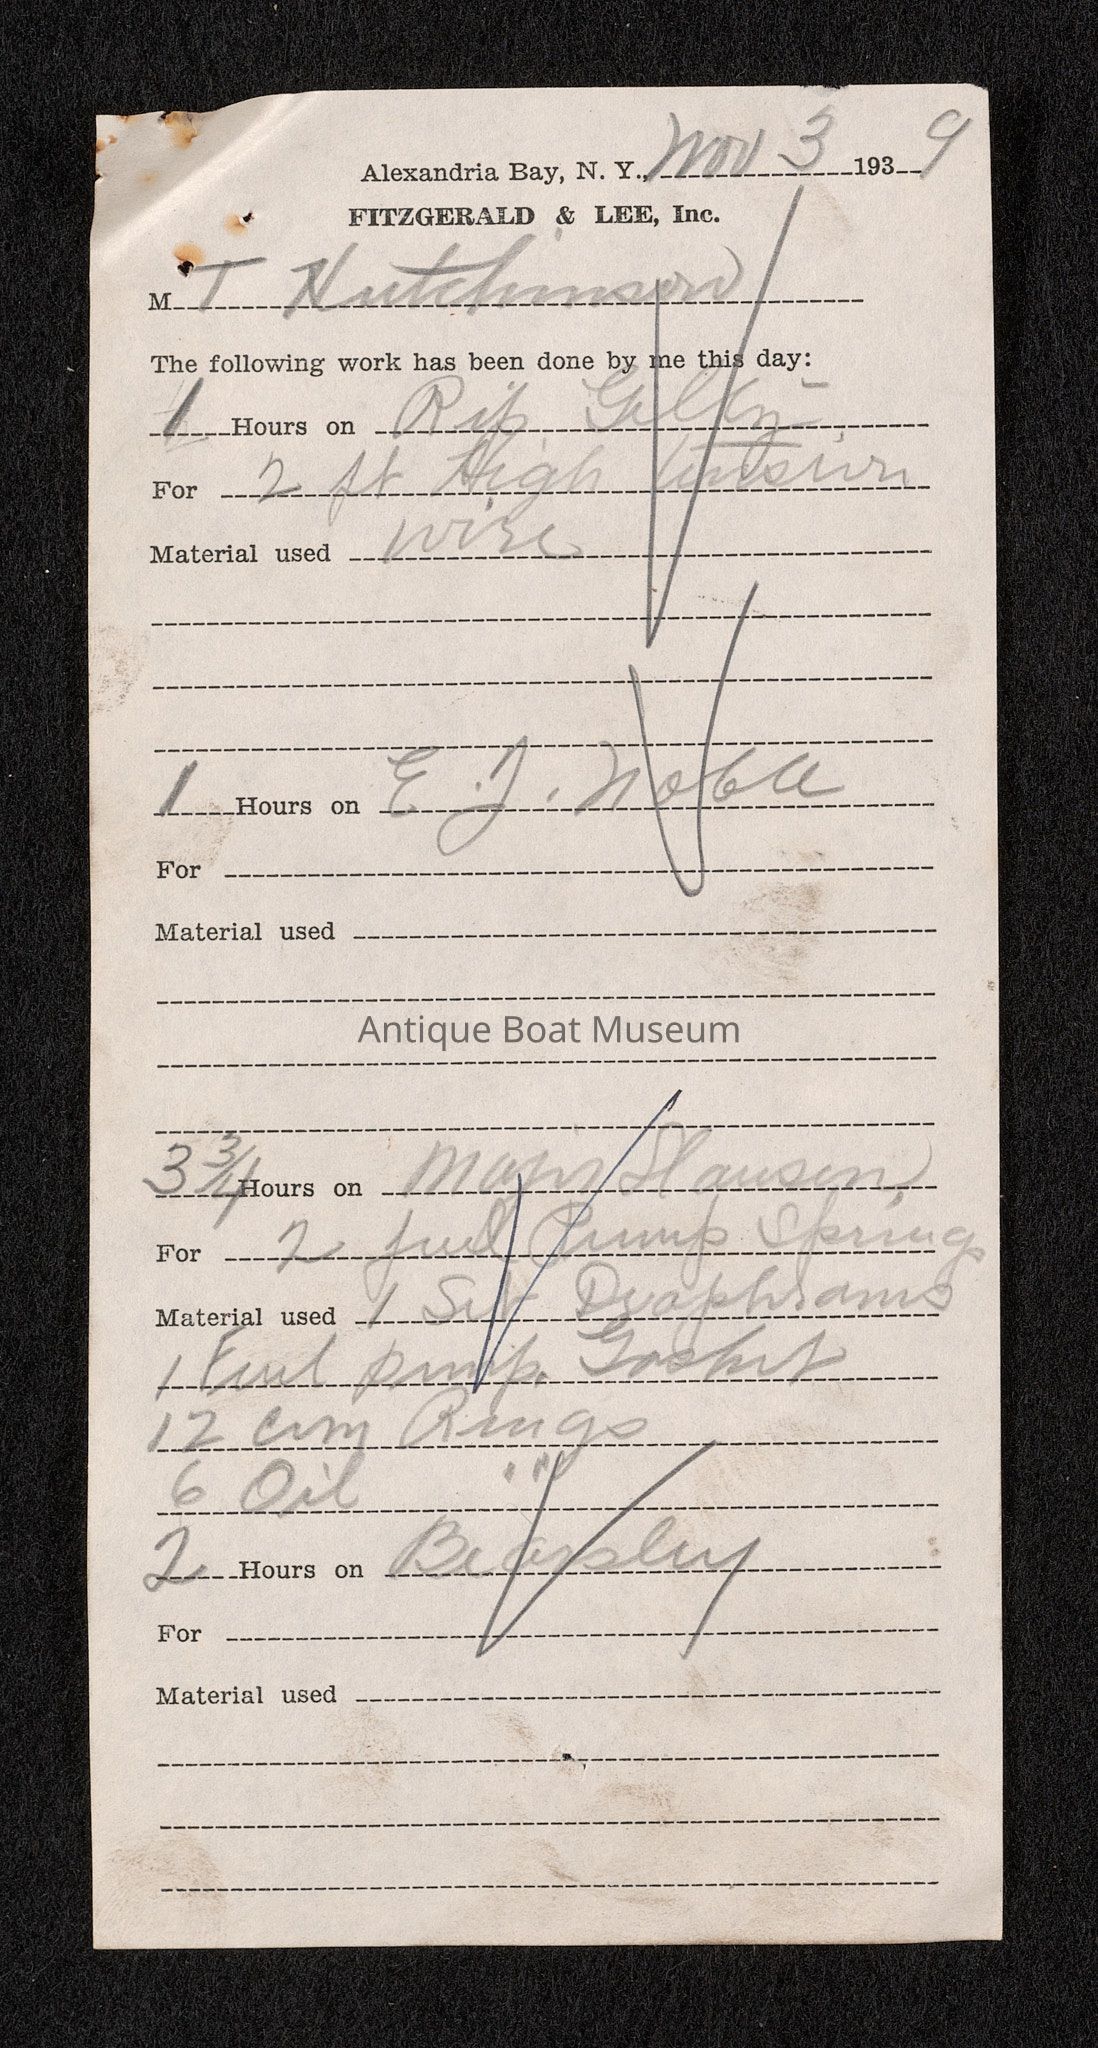 Alexandria Bay, N. Y., Nov 3 1939
FITZGERALD & LEE, Inc.
M T Hutchinson
The following work has been done by me this day:
1 Hours on Rip
For 2 ft High tension
Material used wire
1 Hours on E. J. Noble
For
Material used
Antique Boat Museum
3 3/4 Hours on Major Slauson
For 2 fuel Pump Springs
Material used 1 Set Diaphrams
1 Fuel pump. Gasket
12 com Rings
6 Oil " "
2 Hours on Bearsley
For
Material used